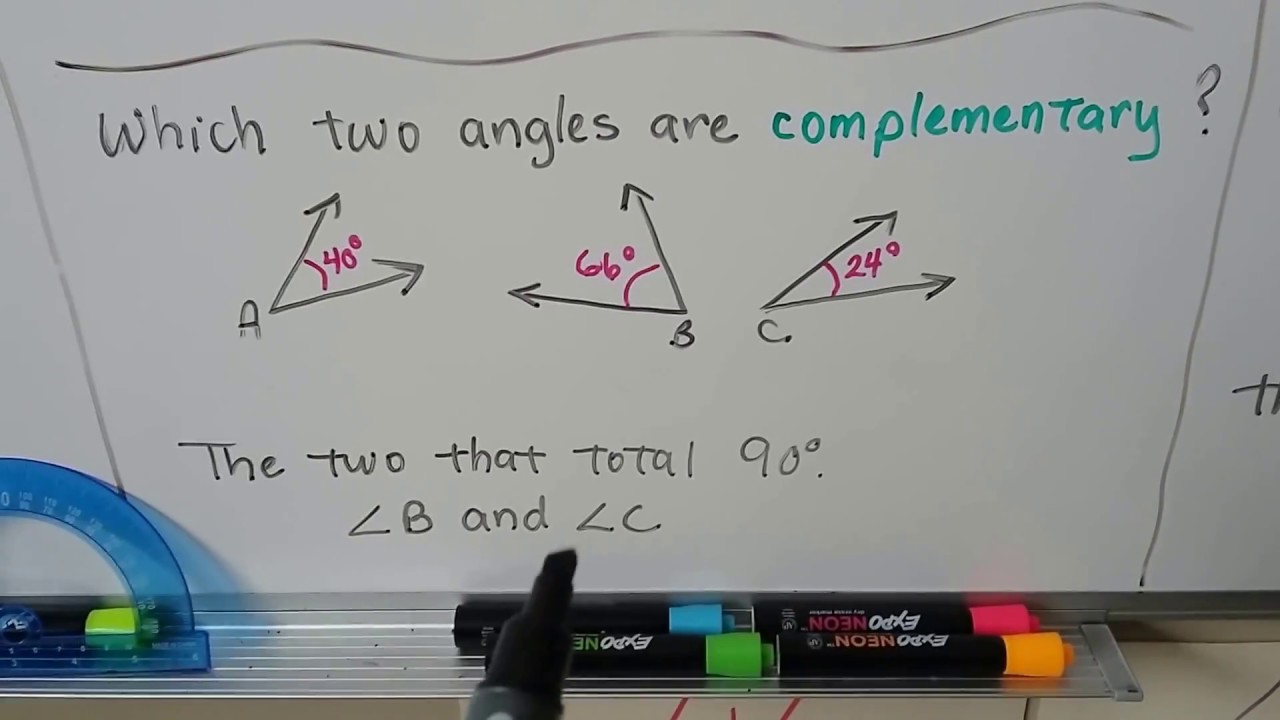 Which two angles are complementary?
40°
66°
24°
A
B
C.
The two that total 90°.
∠B and ∠C
EXPO NEON
EXPO NEON dry erase marker
EXPO NEON